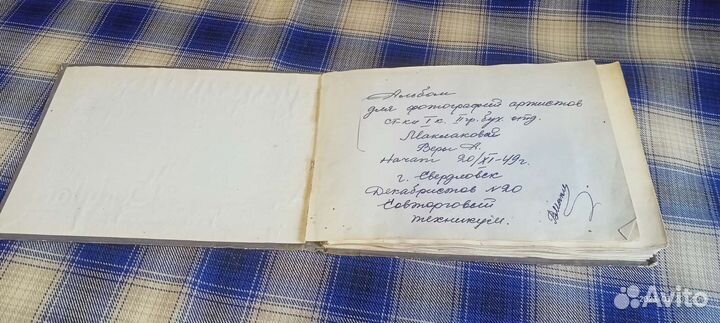 Альбом
для фотографий артистов
ст-ки I к. II гр. бух отд.
Маклаковой
Веры А.
Начат 20/XI-49г.
г. Свердловск
Декабристов N20
Совторговый
техникум.
Avito